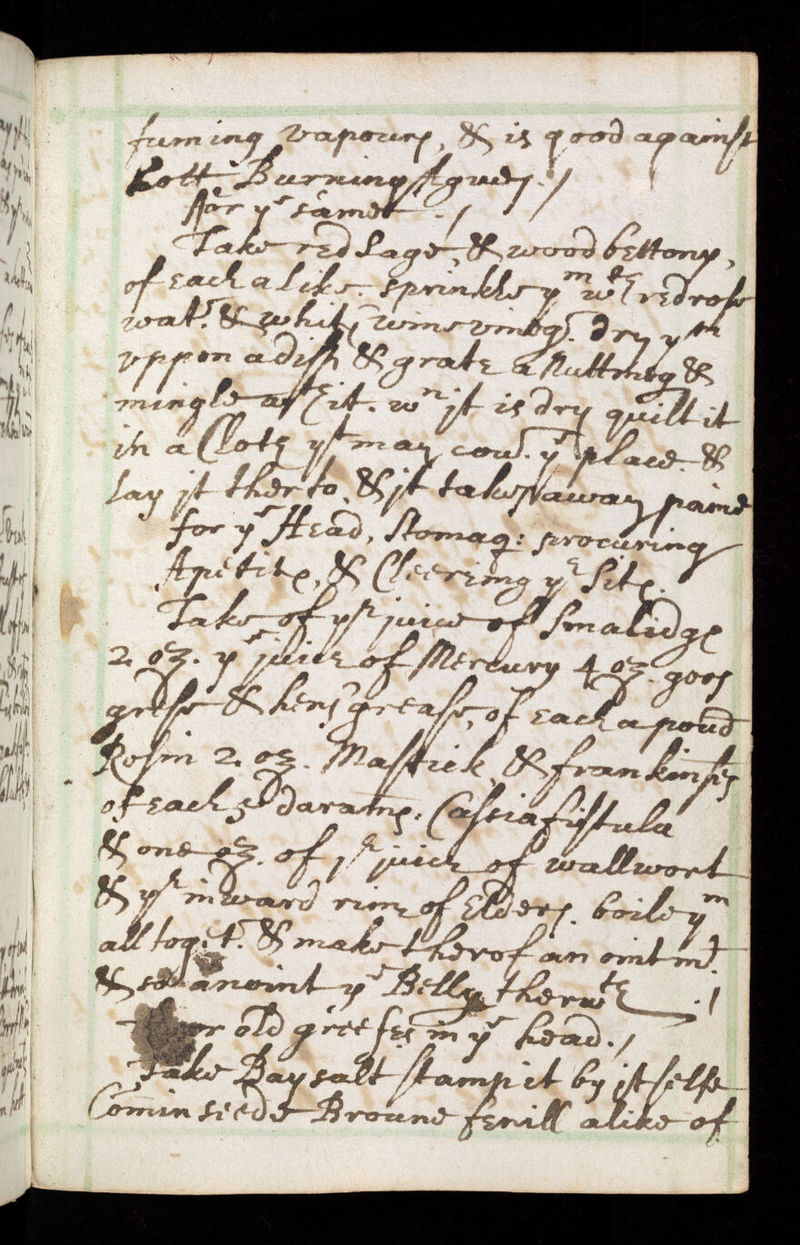 fuming vapours, & is good against
hott Burning Agues ./
for yᵉ same ./
Take red Sage, & wood bettony,
of each alike. sprinkle yᵐ wᵗʰ red rose
watʳ. & white wine vinegʳ. dry yᵐ
vppon a dish & grate a Nuttmeg &
mingle wᵗʰ it. wⁿ jt is dry quilt it
in a Cloth yᵗ may couʳ. yᵉ place. &
lay jt therto, & jt takes away paine
for yᵉ Head, Stomaq: procuring
Apetite, & Cleering yᵉ Site.
Take of yᵉ juice of Smalidge
2. oz. yᵉ juice of Mercury 4 oz. goos
grese & hens grease, of each a poūd
Rosin 2. oz. Mastick, & frankinses
of each 5 darams. Cassia fistula
& one oz. of yᵉ juice of wallwort
& yᵉ inward rine of Elders. boile yᵐ
all togetʳ. & make therof an ointmᵗ.
& so anoint yᵉ Belly therwᵗʰ ./
For old greefes in yᵉ head ./
Take Bay salt stamp it by jt selfe
Comin seede Broune fenill alike of